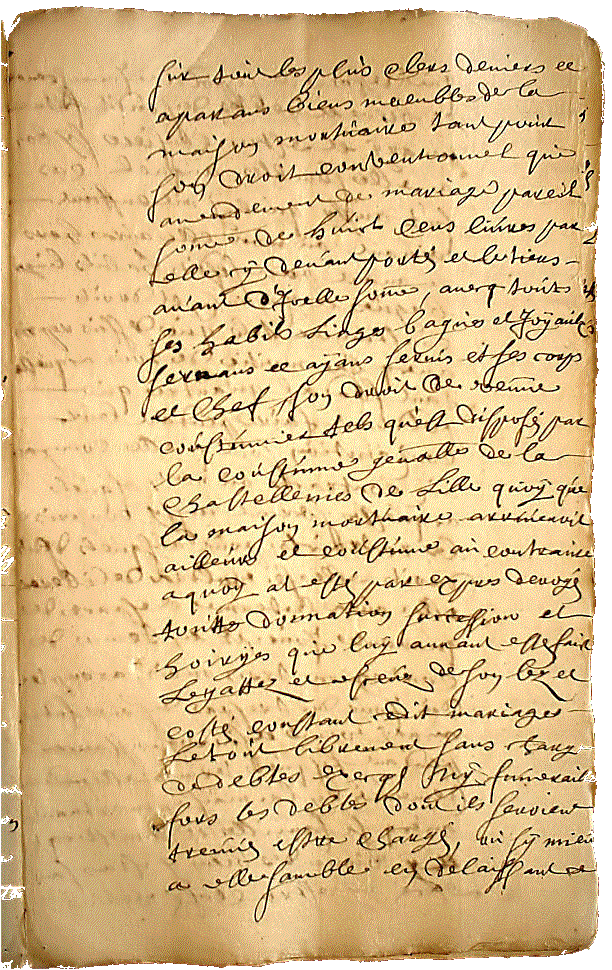 sur tout les plus clers deniers et
aparans biens moeubles de la
maison mortuaire tant pour
son droit conventionnel que
amendement de mariage pareil
somē de huict cens livres par
elle cy devant portés et le tiers
avant d'Icelle somē, avecq touts
ses habits Linges bagues et Joyaulx
servans et ayans servis à ses corps
et Chef, son droit de
coustumier tels qu'est disposé par
la coustume genalles de la
Chastellenies de Lille quoy que
la maison mortuaire arriveroit
ailleurs et coustume au contraire
a quoy at esté par expres derogés
touttes donnation succession et
hoiryes que luy auroient esté fait
Legattés et de son lez et
costé constant dit mariages
Le tout librement sans charg
de debtes funerail
fors les debtes dont ils seroient
trouvés estre Chargés, ou sy mieu
a elle samble en delaissant ce